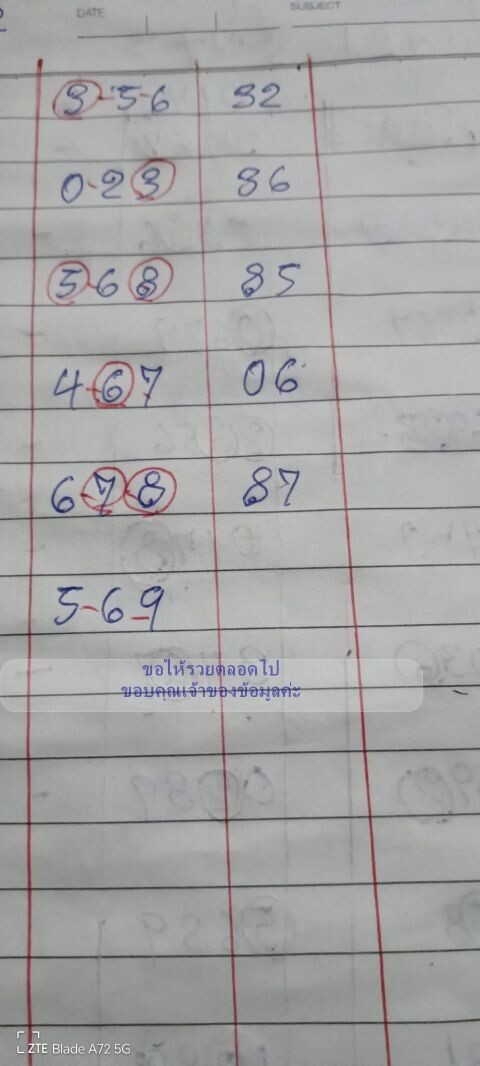 DATE SUBJECT
3-5-6 32
0-2 3 36
5-6 8 85
4-6 7 06
6-7-8 87
5-6-9
ขอให้รวยตลอดไป
ขอบคุณเจ้าของข้อมูลค่ะ
ZTE Blade A72 5G